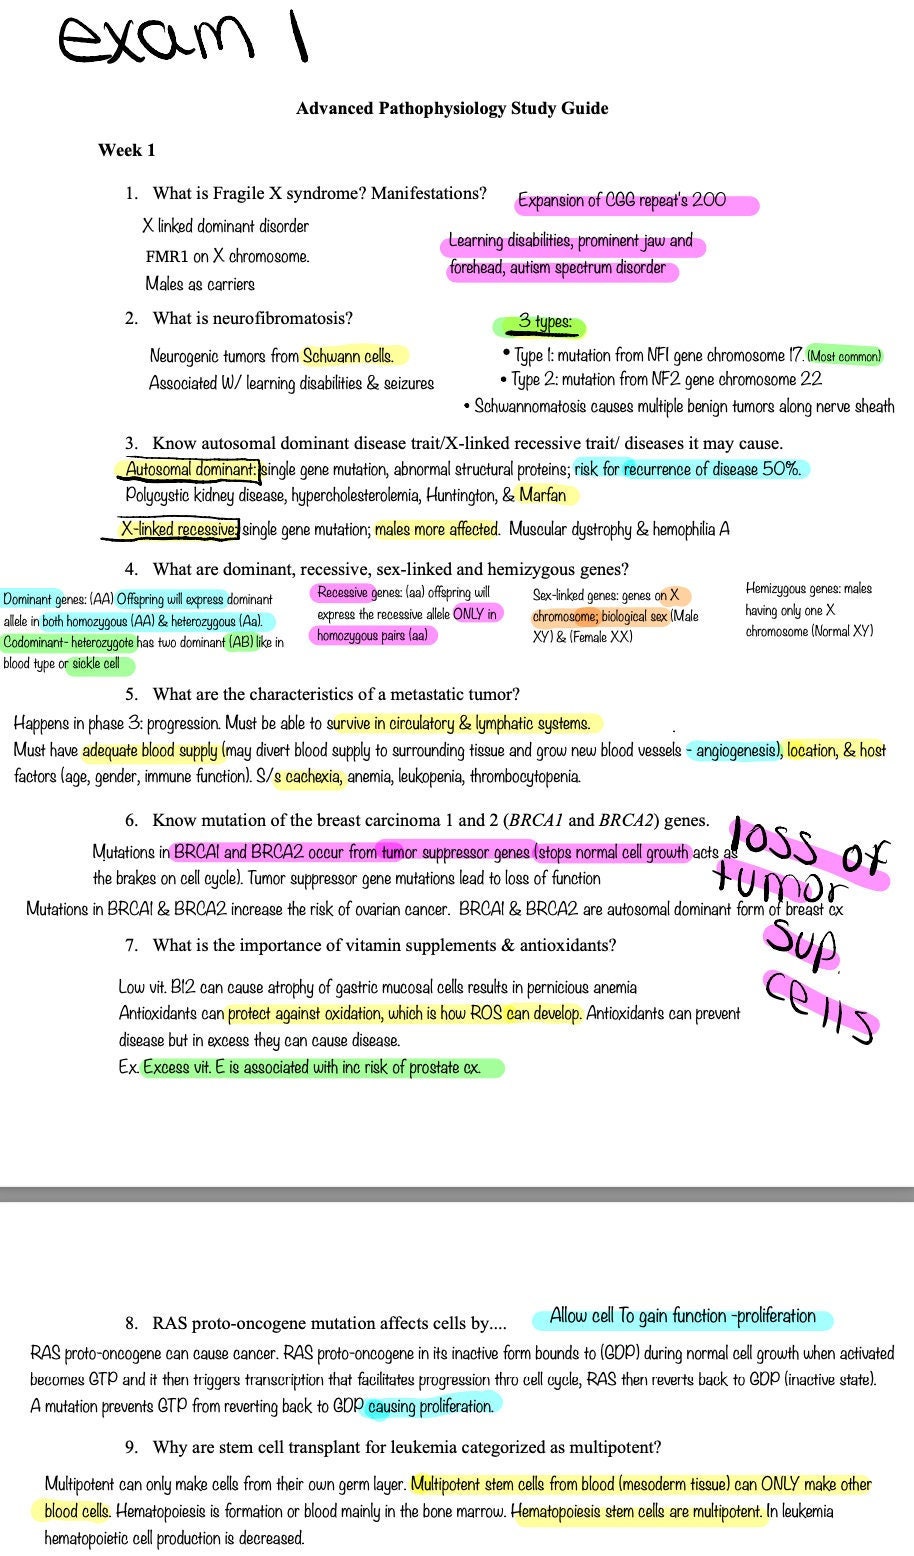 exam 1
Advanced Pathophysiology Study Guide
Week 1
1. What is Fragile X syndrome? Manifestations?
Expansion of CGG repeat's 200
X linked dominant disorder
FMR1 on X chromosome.
Males as carriers
Learning disabilities, prominent jaw and
forehead, autism spectrum disorder
2. What is neurofibromatosis?
3 types:
Neurogenic tumors from Schwann cells.
Associated W/ learning disabilities & seizures
• Type 1: mutation from NF1 gene chromosome 17. (Most common)
• Type 2: mutation from NF2 gene chromosome 22
• Schwannomatosis causes multiple benign tumors along nerve sheath
3. Know autosomal dominant disease trait/X-linked recessive trait/ diseases it may cause.
Autosomal dominant: single gene mutation, abnormal structural proteins; risk for recurrence of disease 50%.
Polycystic kidney disease, hypercholesterolemia, Huntington, & Marfan
X-linked recessive: single gene mutation; males more affected. Muscular dystrophy & hemophilia A
4. What are dominant, recessive, sex-linked and hemizygous genes?
Dominant genes: (AA) Offspring will express dominant
allele in both homozygous (AA) & heterozygous (Aa).
Codominant- heterozygote has two dominant (AB) like in
blood type or sickle cell
Recessive genes: (aa) offspring will
express the recessive allele ONLY in
homozygous pairs (aa)
Sex-linked genes: genes on X
chromosome; biological sex (Male
XY) & (Female XX)
Hemizygous genes: males
having only one X
chromosome (Normal XY)
5. What are the characteristics of a metastatic tumor?
Happens in phase 3: progression. Must be able to survive in circulatory & lymphatic systems.
Must have adequate blood supply (may divert blood supply to surrounding tissue and grow new blood vessels - angiogenesis), location, & host
factors (age, gender, immune function). S/s cachexia, anemia, leukopenia, thrombocytopenia.
6. Know mutation of the breast carcinoma 1 and 2 (BRCA1 and BRCA2) genes.
Mutations in BRCA1 and BRCA2 occur from tumor suppressor genes (stops normal cell growth acts as
the brakes on cell cycle). Tumor suppressor gene mutations lead to loss of function
Mutations in BRCA1 & BRCA2 increase the risk of ovarian cancer. BRCA1 & BRCA2 are autosomal dominant form of breast cx
loss of
tumor
sup.
cells
7. What is the importance of vitamin supplements & antioxidants?
Low vit. B12 can cause atrophy of gastric mucosal cells results in pernicious anemia
Antioxidants can protect against oxidation, which is how ROS can develop. Antioxidants can prevent
disease but in excess they can cause disease.
Ex. Excess vit. E is associated with inc risk of prostate cx.
8. RAS proto-oncogene mutation affects cells by....
Allow cell To gain function -proliferation
RAS proto-oncogene can cause cancer. RAS proto-oncogene in its inactive form bounds to (GDP) during normal cell growth when activated
becomes GTP and it then triggers transcription that facilitates progression thro cell cycle, RAS then reverts back to GDP (inactive state).
A mutation prevents GTP from reverting back to GDP causing proliferation.
9. Why are stem cell transplant for leukemia categorized as multipotent?
Multipotent can only make cells from their own germ layer. Multipotent stem cells from blood (mesoderm tissue) can ONLY make other
blood cells. Hematopoiesis is formation or blood mainly in the bone marrow. Hematopoiesis stem cells are multipotent. In leukemia
hematopoietic cell production is decreased.